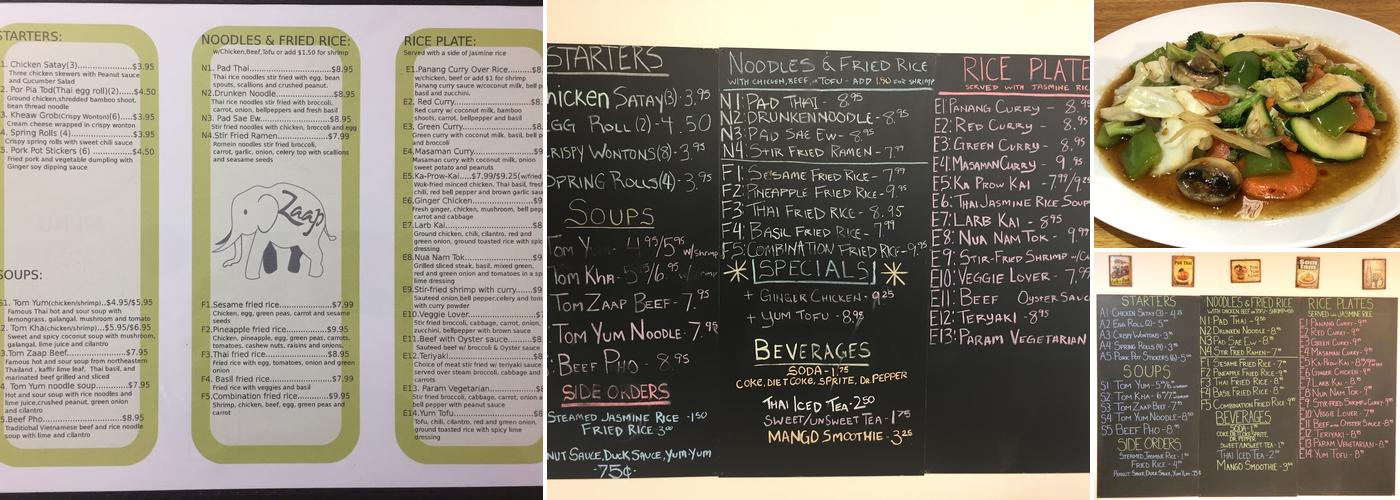 STARTERS:
1. Chicken Satay(3)..............$3.95
Three chicken skewers with Peanut sauce
and Cucumber Salad
2. Por Pia Tod(Thai egg roll)(2).....$4.50
Ground chicken,shredded bamboo shoot,
bean thread noodle
3. Kheaw Grob(Crispy Wonton)(6)....$3.95
Cream cheese wrapped in crispy wonton
4. Spring Rolls (4)...............$3.95
Crispy spring rolls with sweet chili sauce
5. Pork Pot Stickers (6)...........$4,50
Fried pork and vegetable dumpling with
Ginger soy dipping sauce
SOUPS:
S1. Tom Yum(chicken/shrimp)..$4.95/$5.95
Famous Thai hot and sour soup with
lemongrass, galangal, mushroom and tomato
2. Tom Kha(chicken/shrimp)...$5.95/$6.95
Sweet and spicy coconut soup with mushroom,
galangal, lime juice and cilantro
3.Tom Zaap Beef.................$7.95
Famous hot and sour soup from northeastern
Thailand , kaffir lime leaf, Thai basil, and
marinated beef grilled and sliced
4. Tom Yum noodle soup.........$7.95
Hot and sour soup with rice noodles and
lime juice,crushed peanut, green onion
and cilantro
5.Beef Pho......................$8.95
Traditiohal Vietnamese beef and rice noodle
soup with lime and cilantro
NOODLES & FRIED RICE:
w/Chicken,Beef,Tofu or add $1.50 for shrimp
N1. Pad Thai.....................$8.95
Thai rice noodles stir fried with egg, bean
spouts, scallions and crushed peanut.
N2.Drunken Noodle..............$8.95
Thai rice noodles stir fried with broccoli,
carrot, onion, bellpeppers and fresh basil
N3. Pad Sae Ew..................$8.95
Stir fried noodles with chicken, broccoli and egg
N4.Stir Fried Ramen.............$7.99
Romein noodles stir fried broccoli,
carrot, garlic, onion, celery top with scallions
and seasame seeds
Zaap
F1.Sesame fried rice..............$7.99
Chicken, egg, green peas, carrot and sesame
seeds
F2.Pineapple fried rice............$9.95
Chicken, pineapple, egg, green peas, carrots,
tomatoes, cashew nuts, raisins and onions,
F3.Thai fried rice.................$8.95
Fried rice with egg, tomatoes, onion and green
onion
F4. Basil fried rice................$7.99
Fried rice with veggies and basil
F5.Combination fried rice..........$9.95
Shrimp, chicken, beef, egg, green peas and
carrot
RICE PLATE:
Served with a side of Jasmine rice
E1.Panang Curry Over Rice.......$8
w/chicken, beef or add $1 for shrimp
Panang curry sauce w/coconut milk, bell
basil and zucchini.
E2. Red Curry....................$8
Red curry w/ coconut milk, bamboo
shoots, carrot, bellpepper and basil
E3. Green Curry..................$8
Green curry with coconut milk, basil, bell p
and broccoli
E4.Masaman Curry...............$9
Masaman curry with coconut milk, onion,
sweet potato and peanuts
E5.Ka-Prow-Kai.....$7.99/$9.25(w/fried
Wok-fried minced chicken, Thai basil, fresh
chili, red bell pepper and brown garlic sauc
E6.Ginger Chicken................$9
Fresh ginger, chicken, mushroom, bell pep
carrot and cabbage
E7.Larb Kai.......................$8
Ground chicken, chili, cilantro, red and
green onion, ground toasted rice with spic
dressing
E8.Nua Nam Tok..................$9
Grilled sliced steak, basil, mixed green,
red and green onion and tomatoes in a
lime dressing
E9.Stir-fried shrimp with curry....$9
Sauteed onion,bell pepper,celery and tom
with curry powder
E10.Veggie Lover.................$7
Stir fried broccoli, cabbage, carrot, onion,
zucchini, bellpepper with brown sauce
E11.Beef with Oyster sauce.......$8
Sauteed beef w/ broccoli & Oyster sauce
E12.Teriyaki......................$8
Choice of meat stir fried w/ teriyaki sauce
served over steam broccoli, cabbage and
carrots
E13. Param Vegetarian............$8
Stir fried broccoli, cabbage, carrot, onion, z
bell pepper with peanut sauce
E14.Yum Tofu.....................$8
Tofu, chili, cilantro, red and green onion,
ground toasted rice with spicy lime
dressing
STARTERS
hicken Satay(3)-3.95
EGG ROLL (2)-4.50
RISPY WONTONS(8)-3.95
SPRING ROLLS(4)-3.95
SOUPS
TOM Y 4.95/5.95 w/shrimp
TOM KHA-5.95/6.95
TOM ZAAP BEEF-7.95
TOM YUM NOODLE-7.95
BEEF PHO-8.95
SIDE ORDERS
STEAMED JASMINE RICE-1.50
FRIED RICE-3.00
NUT SAUCE, DUCK SAUCE, YUM-YUM
·75¢·
NOODLES & FRIED RICE
WITH CHICKEN, BEEF, TOFU - ADD 1.50 FOR SHRIMP
N1: PAD THAI-8.95
N2: DRUNKEN NOODLE-8.95
N3: PAD SAE EW-8.95
N4: STIR FRIED RAMEN-7.99
F1: SESAME FRIED RICE-7.99
F2: PINEAPPLE FRIED RICE-9.95
F3: THAI FRIED RICE-8.95
F4: BASIL FRIED RICE-7.99
F5: COMBINATION FRIED RICE-9.95
SPECIALS
+ GINGER CHICKEN-9.25
+ YUM TOFU-8.95
BEVERAGES
SODA-1.75
COKE, DIET COKE, SPRITE, DR. PEPPER
THAI ICED TEA-2.50
SWEET/UNSWEET TEA-1.75
MANGO SMOOTHIE-3.25
RICE PLATE
SERVED w/ JASMINE RIC
E1: PANANG CURRY-8.95
E2: RED CURRY-8.95
E3: GREEN CURRY-8.95
E4: MASAMAN CURRY-9.95
E5: KA PROW KAI-7.99/9.25
E6: THAI JASMINE RICE SOUP
E7: LARB KAI-8.95
E8: NUA NAM TOK-9.99
E9: STIR-FRIED SHRIMP w/CU
E10: VEGGIE LOVER-7.99
E11: BEEF OYSTER SAUC
E12: TERYAKI-8.95
E13: PARAM VEGETARIAN
STARTERS
A1 CHICKEN SATAY (3)
A2 EGG ROLL (2)
A3 CRISPY WONTONS
A4 SPRING ROLLS
A5 PORK POT STICKERS (6)
SOUPS
S1 TOM YUM
S2 TOM KHA
S3 TOM ZAAP BEEF
S4 TOM YUM NOODLE
S5 BEEF PHO
SIDE ORDERS
STEAMED JASMINE RICE
FRIED RICE
PEANUT SAUCE, DUCK SAUCE, YUM YUM
NOODLES & FRIED RICE
N1 PAD THAI
N2 DRUNKEN NOODLE
N3 PAD SAE EW
N4 STIR FRIED RAMEN
F1 SESAME FRIED RICE
F2 PINEAPPLE FRIED RICE
F3 THAI FRIED RICE
F4 BASIL FRIED RICE
F5 COMBINATION FRIED RICE
BEVERAGES
SODA
COKE, DIET COKE, SPRITE,
DR. PEPPER
SWEET/UNSWEET TEA
THAI ICED TEA
MANGO SMOOTHIE
RICE PLATES
SERVED w/ JASMINE RICE
E1 PANANG CURRY
E2 RED CURRY
E3 GREEN CURRY
E4 MASAMAN CURRY
E5 KA PROW KAI
E6 GINGER CHICKEN
E7 LARB KAI
E8 NUA NUM TOK
E9 STIR-FRIED SHRIMP w/ CURRY
E10 VEGGIE LOVER
E11 BEEF AND OYSTER SAUCE
E12 TERIYAKI
E13 PARAM VEGETARIAN
E14 YUM TOFU